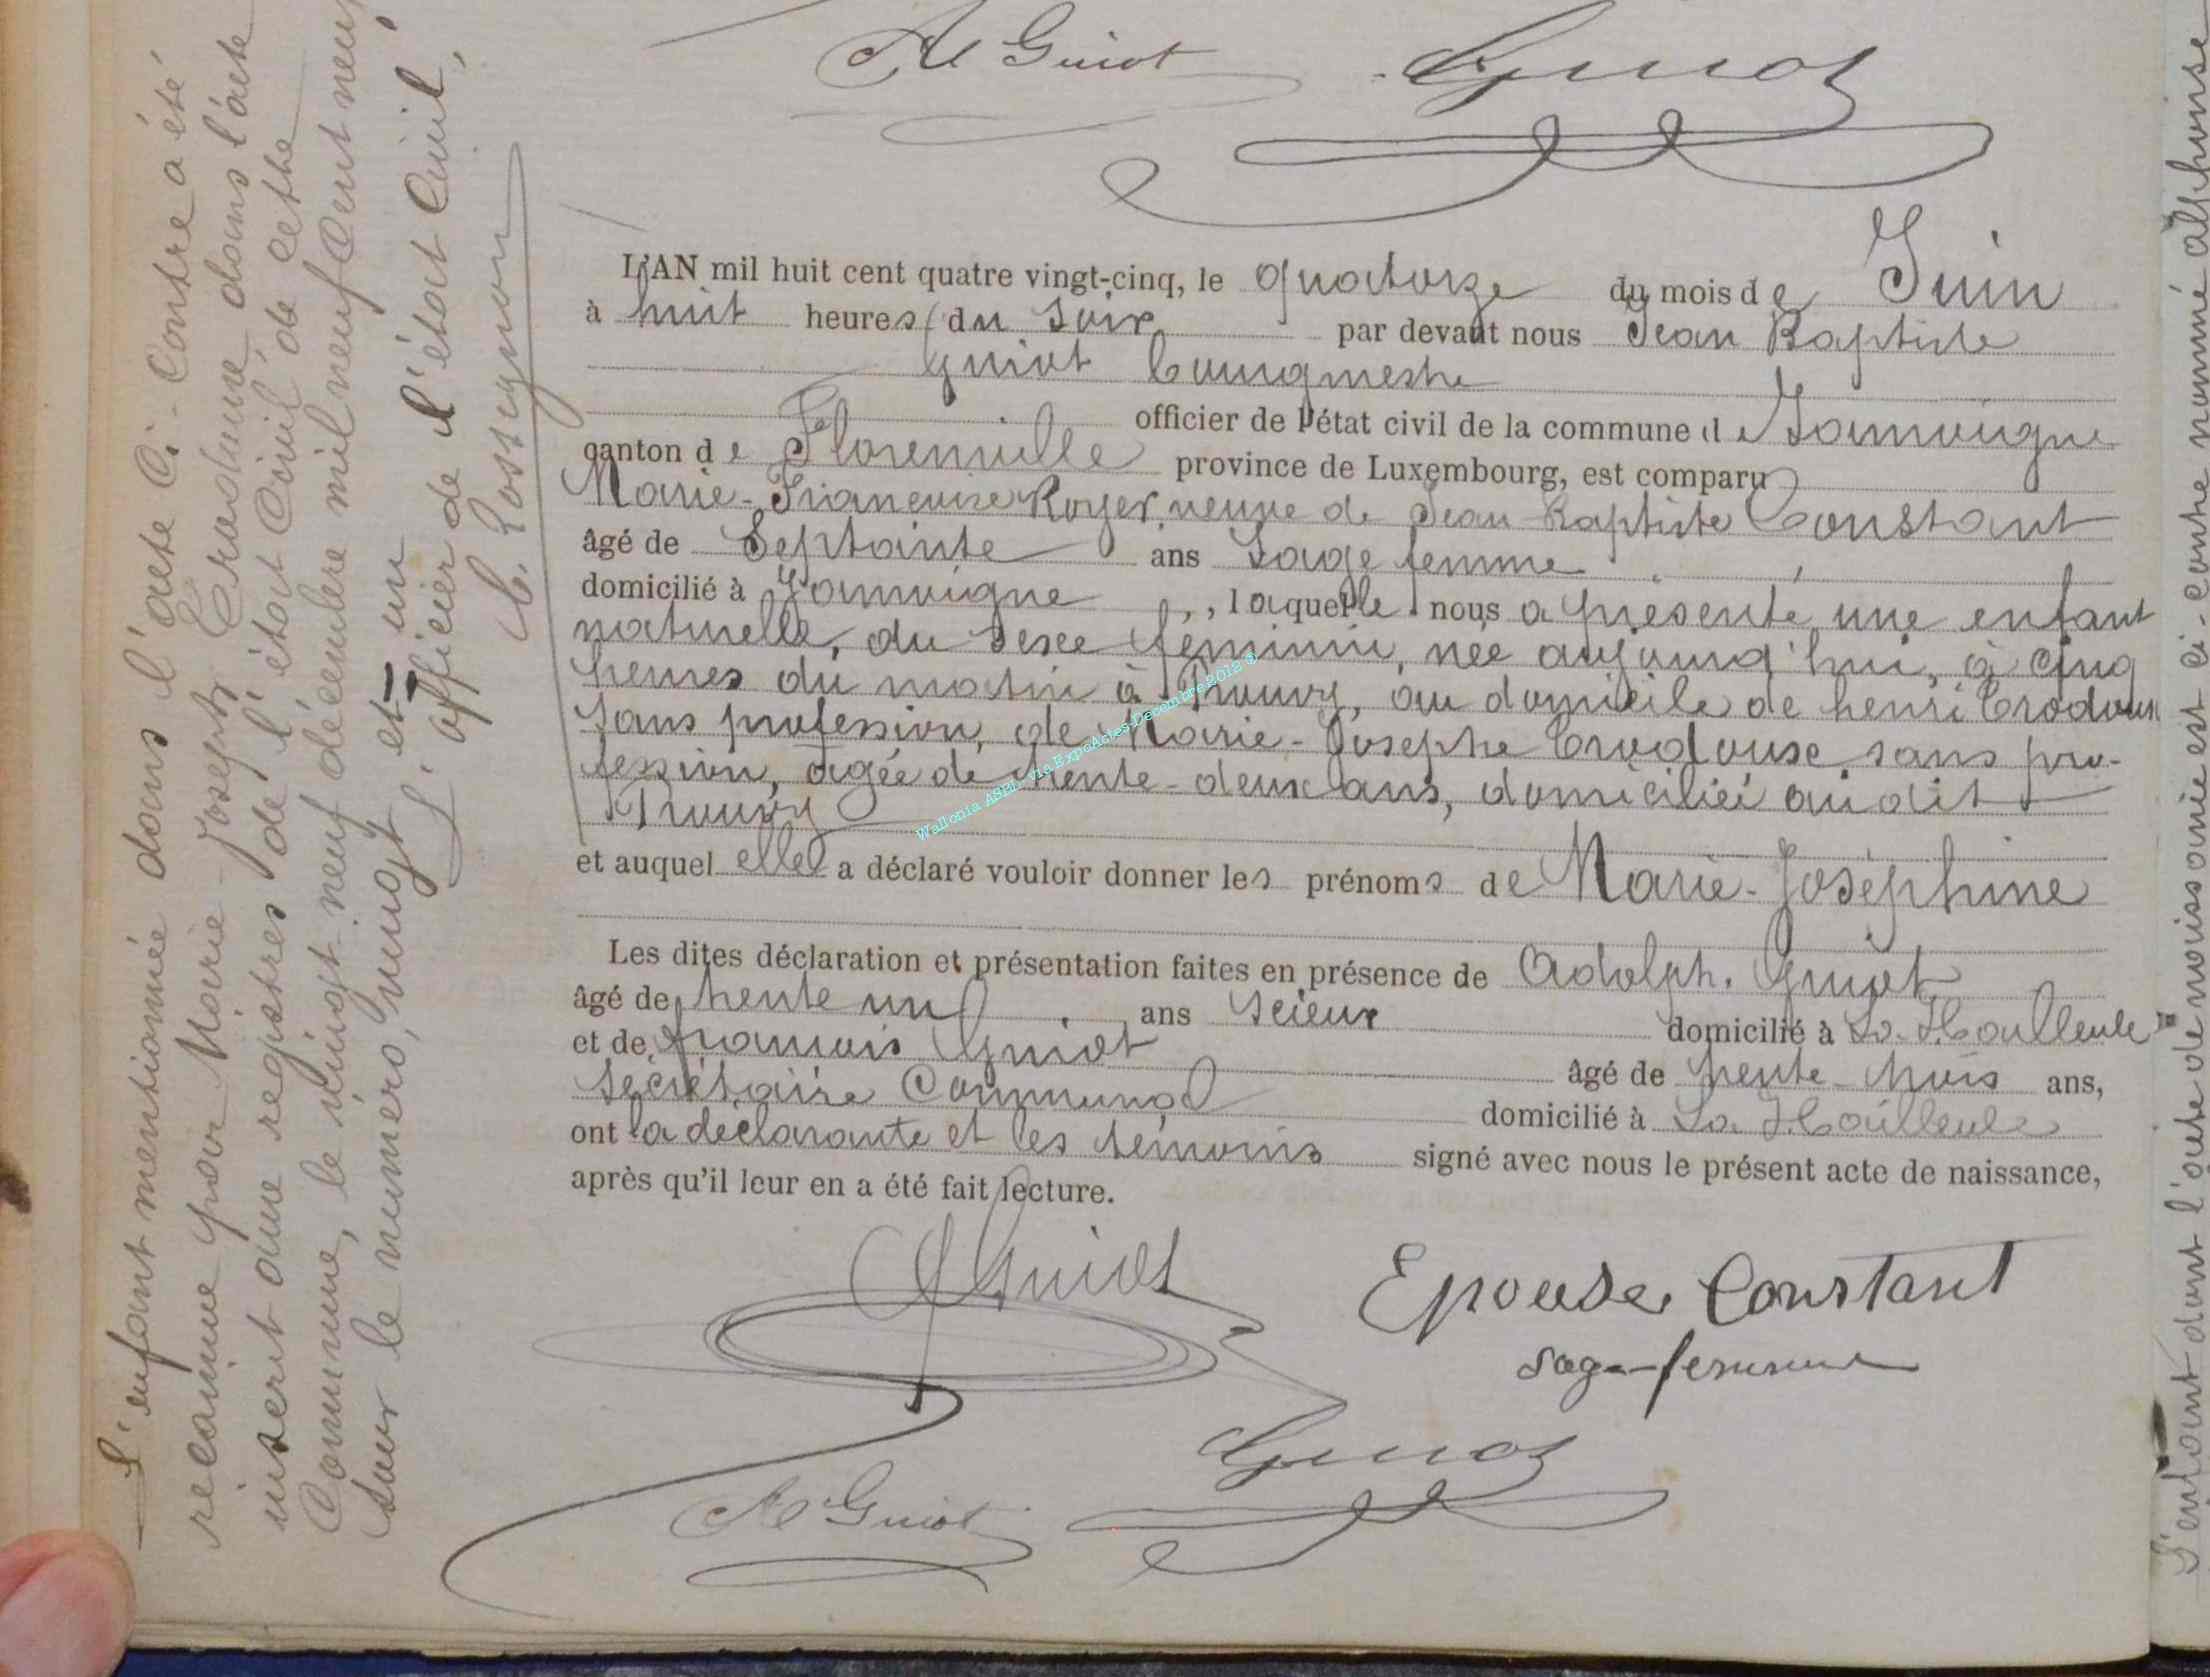 Al Guiot Guiot
L'AN mil huit cent quatre vingt-cinq, le quatorze du mois de Juin
à huit heures du soir par devant nous Jean Baptiste
Guiot bourgmestre
officier de l'état civil de la commune de Jamoigne
canton de Florenville province de Luxembourg, est comparu
Marie-Françoise Royer, veuve de Jean Baptiste Constant
âgé de Septante ans Sage femme
domicilié à Jamoigne, laquelle nous a présenté une enfant
naturelle, du sexe féminin, née aujourd'hui, à cinq
heures du matin à Prouvy, au domicile de henri
sans profession, de Marie-Josephe sans pro-
fession, âgée de trente-deux ans, domiciliée au dit
Prouvy
et auquel elle a déclaré vouloir donner les prénoms de Marie-Joséphine
Les dites déclaration et présentation faites en présence de Adolph. Guiot
âgé de trente un ans Scieur domicilié à La
et de françois Guiot âgé de trente-trois ans,
Secrétaire Communal domicilié à La
ont la déclarante et les témoins signé avec nous le présent acte de naissance,
après qu'il leur en a été fait lecture.
Guiot Epouse Constant
sage-femme
Al Guiot Guiot
L'enfant mentionnée dans l'acte Ci-Contre a été
reconnue par Marie-Joseph dans l'acte
inséré aux registres de l'état Civil de cette
Commune, le vingt-neuf décembre mil neuf Cent neuf,
sous le numéro, vingt et un
L'officier de l'état Civil,
L'enfant dont l'acte de naissance est ci-contre nommé alphonse
Wallonia ASBL via ExpoActes Decembre 2012 ©